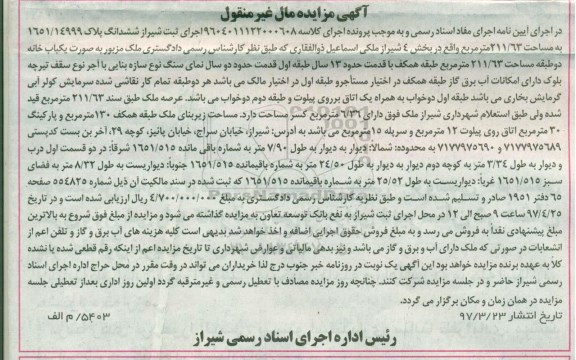 آگهی مزایده مال غیر منقول
در اجرای آیین نامه اجرای مفاد اسناد رسمی و به موجب پرونده اجرای کلاسه ۹۶۰۴۰۱۱۱۳۲۰۰۰۶۰۸ اجرای ثبت شیراز ششدانگ پلاک ۱۶۵۱/۱۴۹۹۹
به مساحت ۲۱۱/۶۳ مترمربع واقع در بخش ۴ شیراز ملکی اسماعیل ذوالفقاری که طبق نظر کارشناس رسمی دادگستری ملک مزبور به صورت یکباب خانه
دوطبقه مساحت ۲۱۱/۶۳ مترمربع طبقه همکف با قدمت حدود ۱۳ سال طبقه اول قدمت حدود دو سال نمای سنگ نوع سازه بنایی با آجر نوع سقف تیرچه
بلوک دارای امکانات آب برق گاز طبقه همکف در اختیار مستأجر و طبقه اول در اختیار مالک می باشد هر دوطبقه تمام کار نقاشی شده سرمایش کولر آبی
گرمایش بخاری می باشد طبقه اول دوخواب به همراه یک اتاق برروی پیلوت و طبقه دوم دوخواب می باشد. عرصه ملک طبق سند ۲۱۱/۶۳ مترمربع قید
شده ولی طبق استعلام شهرداری شیراز ملک فوق دارای ۷۳۶ مترمربع کسر مساحت دارد. مساحت زیربنای ملک طبقه همکف ۱۳۰ مترمربع و پارکینگ
۳۰ مترمربع اتاق روی پیلوت ۱۲ مترمربع و سرپله ۱۵ مترمربع می باشد به آدرس: شیراز، خیابان سراج، خیابان پائیز، کوچه ۲۹، آخر بن بست کدپستی
۷۱۷۷۹۷۵۶۸۹ و ۷۱۷۷۹۷۵۶۹۰ به محدوده: شمالا: دیوار به دیوار به طول ۷/۹۰ متر به شماره باقی مانده ۱۶۵۱/۵۱۵ شرقا: در دو قسمت اول درب
و دیوار به طول ۳/۳۴ متر به کوچه دوم دیوار به دیوار به طول ۲۴/۵۰ متر به شماره باقیمانده ۱۶۵۱/۵۱۵ جنوبا: دیواریست به طول ۸/۳۲ متر به فضای
سبز ۱۶۵۱/۵۱۵ غربا: دیواریست به طول ۲۵/۵۲ متر به شماره باقیمانده ۱۶۵۱/۵۱۵ که ثبت شده در سند مالکیت آن ذیل شماره ۵۵۴۸۲۵ صفحه
۶۵ دفتر ۱۹۵۱ صادر و تسلیم شده است و طبق نظریه کارشناس رسمی دادگستری به مبلغ ۴/۷۰۰/۰۰۰/۰۰۰ ریال ارزیابی شده است و در تاریخ
۹۷/۴/۲۵ ساعت ۹ صبح الی ۱۲ در محل اجرای ثبت شیراز به نفع بانک توسعه تعاون به مزایده گذاشته می شود و مزایده از مبلغ فوق شروع به بالاترین
مبلغ پیشنهادی نقدا به فروش می رسد و به مبلغ فروش حقوق اجرایی اضافه و اخذ خواهد شد بدیهی است کلیه هزینه های آب برق و گاز و تلفن اعم از
انشعابات در صورتی که ملک دارای آب و برق و گاز می باشد و نیز بدهی مالیاتی و عوارض شهرداری تا تاریخ مزایده اعم از اینکه رقم قطعی شده یا نشده
کلا به عهده برنده مزایده خواهد بود این آگهی یک نوبت در روزنامه خبر جنوب درج لذا خریداران می تواند در وقت مقرر در محل حراج اداره اجرای اسناد
رسمی شیراز حاضر و در جلسه مزایده شرکت کنند. چنانچه روز مزایده مصادف با تعطیل رسمی و غیرمترقبه گردد اولین روز اداری بعداز تعطیلی جلسه
مزایده در همان زمان و مکان برگزار می گردد.
تاریخ انتشار ۹۷/۳/۲۳
۵۴۰۳/م الف
رئیس اداره اجرای اسناد رسمی شیراز